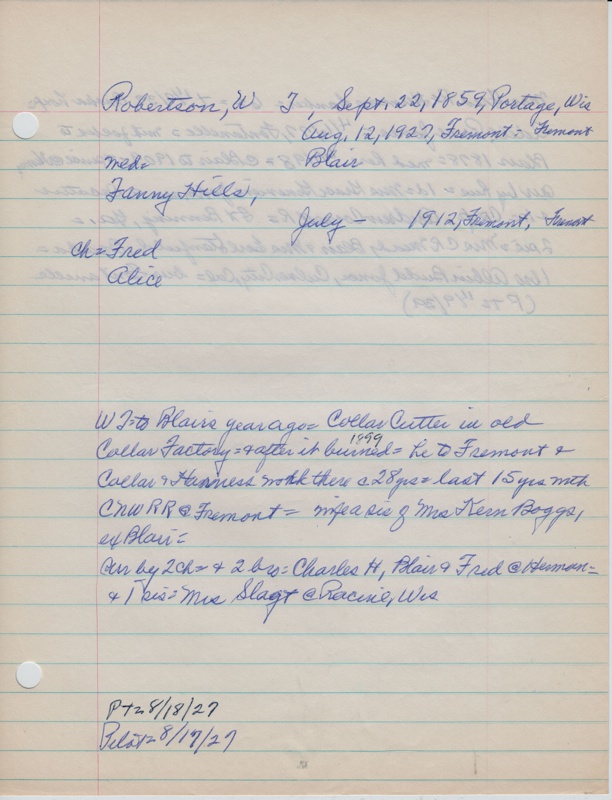 Robertson, W T, Sept. 22, 1859, Portage, Wis
Aug. 12, 1927, Fremont = Fremont
med= Blair
Fanny Hills,
July – 1912, Fremont, Fremont
ch= Fred
Alice
W T = to Blair is year ago = Collar Cutter in old
1899
Collar Factory = & after it burned = he to Fremont &
Collar & Harness work there c 28 yrs = last 15 yrs with
CNW RR @ Fremont = wife a sis of Mrs Kern Boggs,
ex Blair =
Sur by 2 ch = & 2 bro = Charles H, Blair & Fred @ Herman =
& 1 sis = Mrs Slagt @ Racine, Wis
P+= 8/18/27
Pilot= 8/17/27